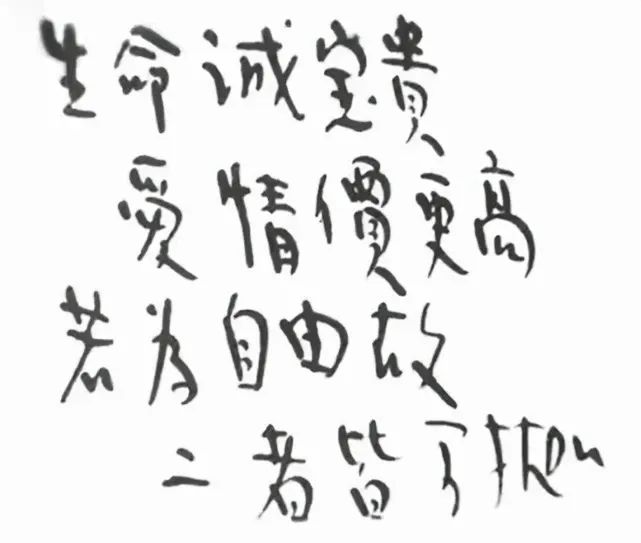 生命诚宝貴
愛情價更高
若為自由故
二者皆可抛